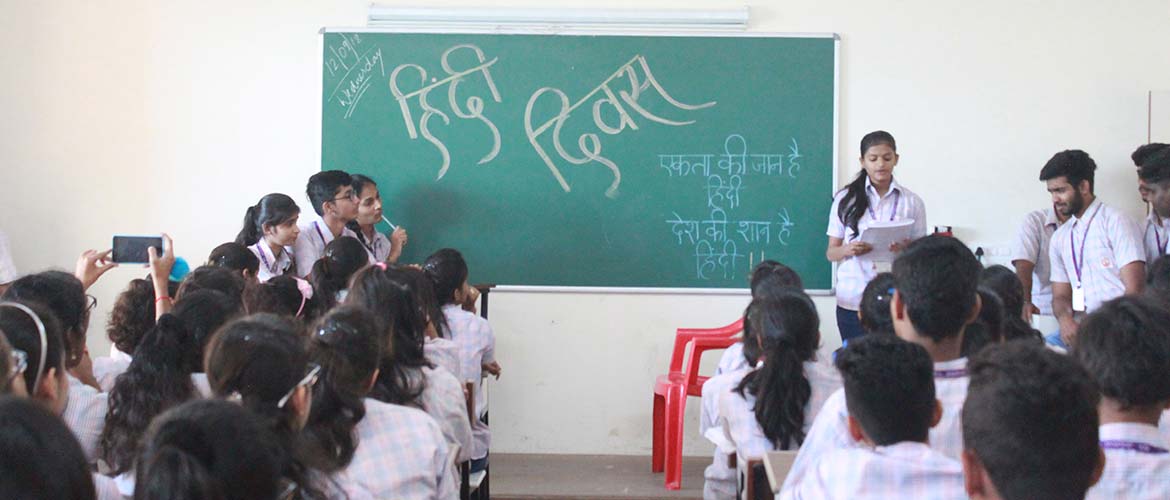 12/09/18
Wednesday
हिंदी दिवस
एकता की जान है
हिंदी
देश की शान है
हिंदी !!